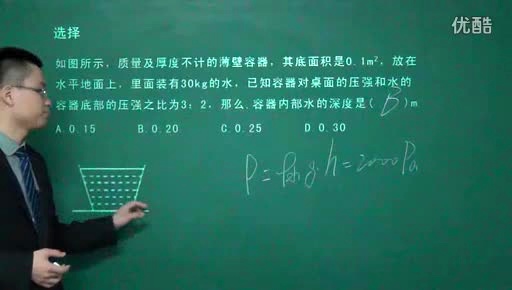 优酷
选择
如图所示，质量及厚度不计的薄壁容器，其底面积是0.1m²，放在
水平地面上，里面装有30kg的水，已知容器对桌面的压强和水的
容器底部的压强之比为3：2，那么.容器内部水的深度是( B )m
A.0.15 B.0.20 C.0.25 D.0.30
P=ρ水g·h=2000Pa